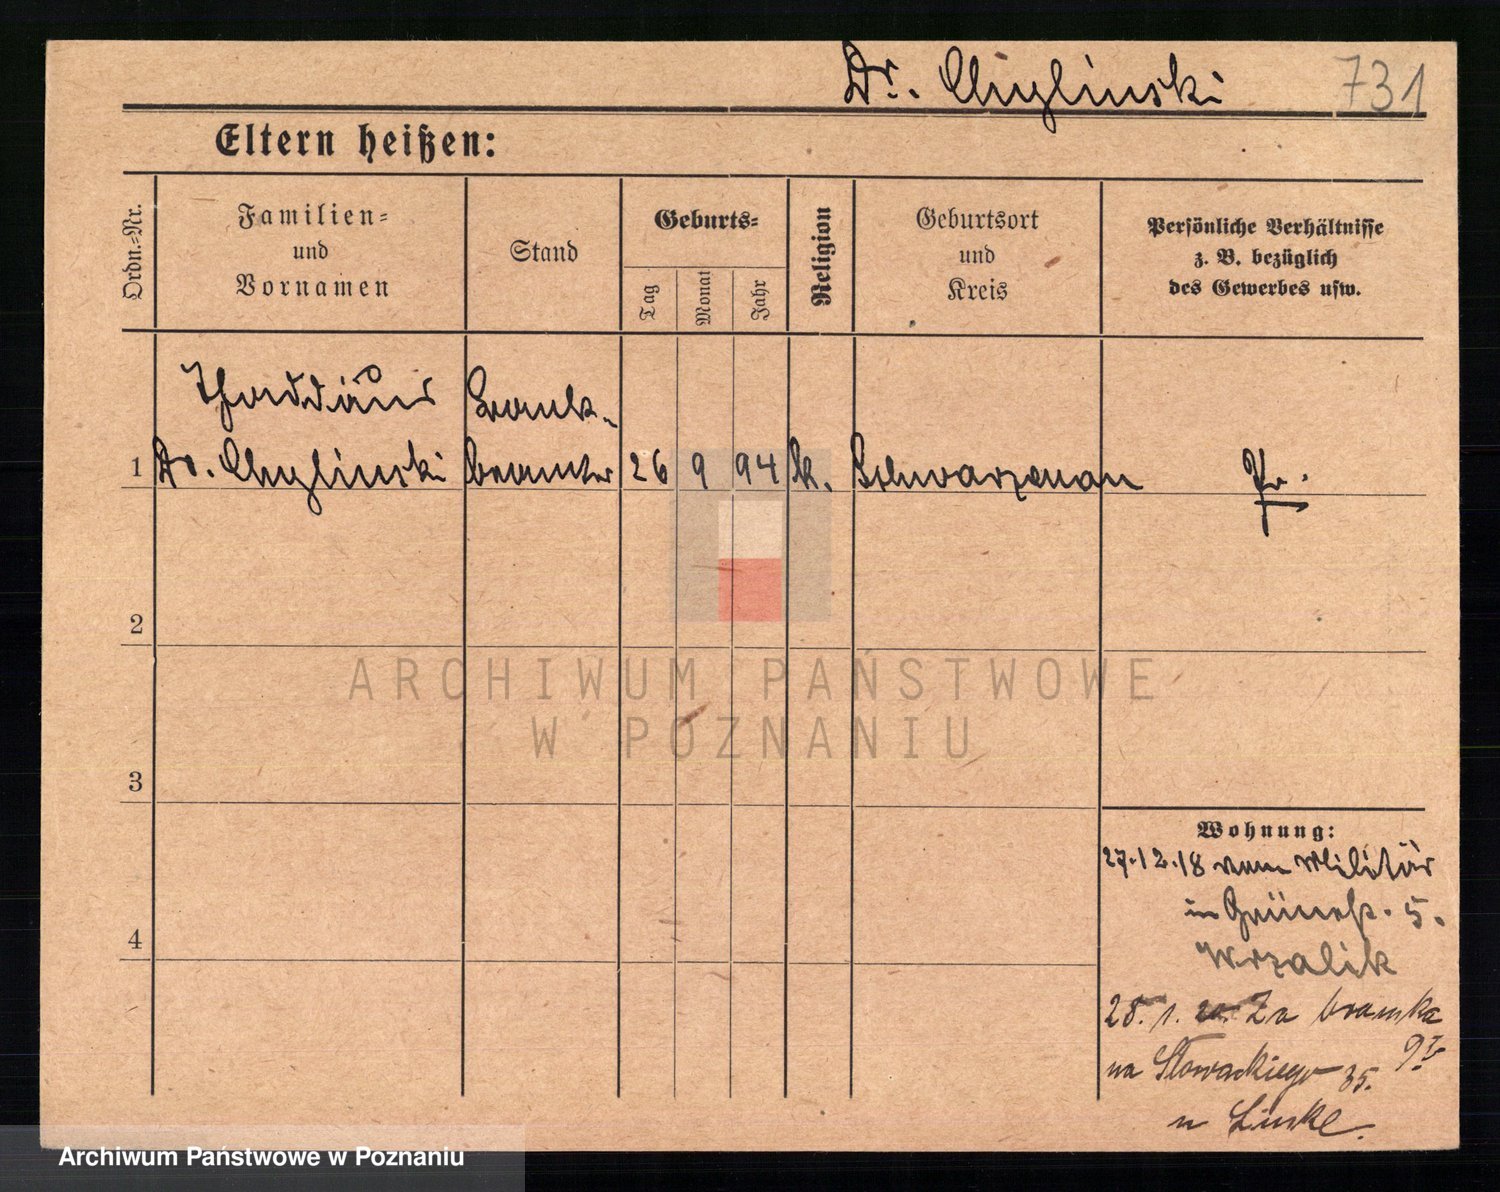 Dr. Chylinski 731
Eltern heißen:
Ordn.=Nr.
Familien=
und
Vornamen
Stand
Geburts=
Tag
Monat
Jahr
Religion
Geburtsort
und
Kreis
Persönliche Verhältnisse
z. B. bezüglich
des Gewerbes usw.
Thaddäus Bank-
1 Dr. Chylinski beamter 26 9 94 k. Schwarzenau Pr.
2
3
4
Wohnung:
27.12.18 vom Militär
in Grünestr. 5.
Wrzalik
28. 1. 20. Za bramka 9 I
na Słowackiego 35.
u Linke.
ARCHIWUM PAŃSTWOWE
W POZNANIU
Archiwum Państwowe w Poznaniu